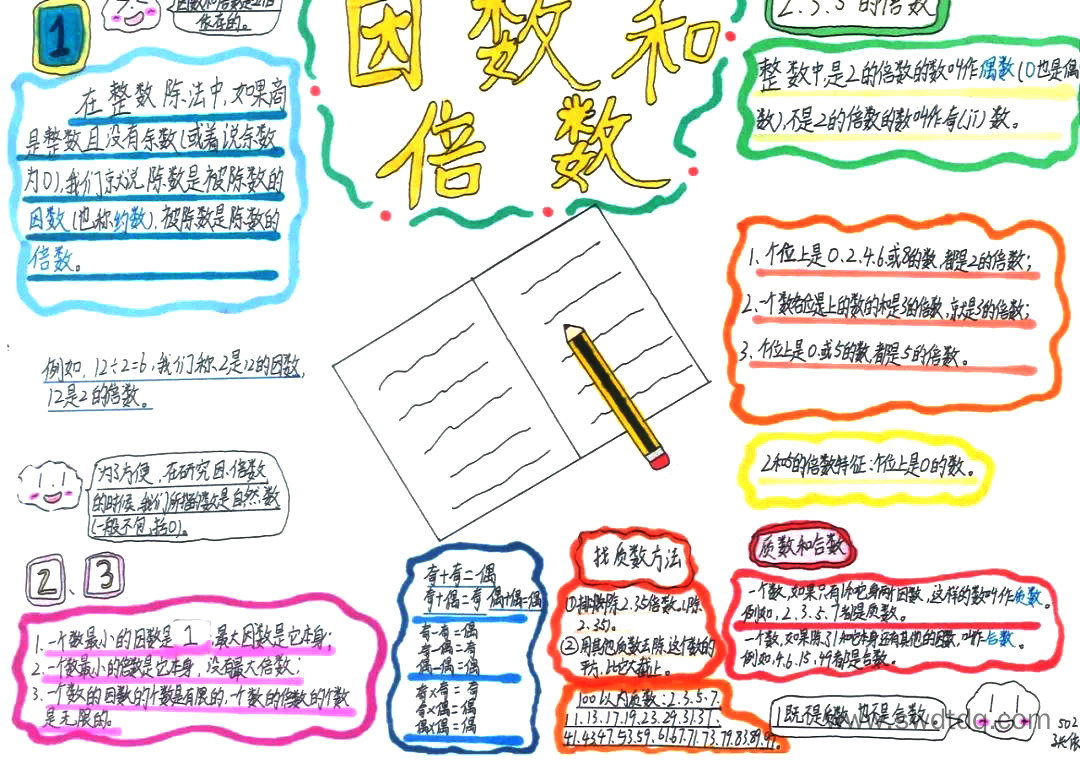 1
因数和倍数是相互
依存的。
因数和
倍数
2.3.5的倍数
在整数除法中,如果商
是整数且没有余数(或着说余数
为0),我们就说除数是被除数的
因数(也称约数),被除数是除数的
倍数。
例如,12÷2=6,我们称2是12的因数,
12是2的倍数。
为了方便,在研究因倍数
的时候,我们所指的数是自然数
(一般不包括0)。
整数中,是2的倍数的数叫作偶数(0也是偶
数),不是2的倍数的数叫作奇(jī)数。
1、个位上是0.2.4.6或8的数,都是2的倍数;
2、一个数各位上的数的和是3的倍数,就是3的倍数;
3、个位上是0或5的数,都是5的倍数。
2和5的倍数特征:个位上是0的数。
2、3
1.一个数最小的因数是1,最大因数是它本身;
2.一个数最小的倍数是它本身,没有最大倍数;
3.一个数的因数的个数是有限的,一个数的倍数的个数
是无限的。
奇+奇=偶
奇+偶=奇 偶+偶=偶
奇-奇=偶
奇-偶=奇
偶-偶=偶
奇×奇=奇
奇×偶=偶
偶×偶=偶
找质数方法
①排除2.3.5倍数
2.3.5)。
②用其他质数去除,这个数的
平方,比它大截止。
100以内质数:2.3.5.7.
11.13.17.19.23.29.31.37.
41.43.47.53.59.61.67.71.73.79.83.89.97。
质数和合数
一个数,如果只有1和它本身两个因数,这样的数叫作质数。
例如,2.3.5.7都是质数。
一个数,如果除了1和它本身还有其他的因数,叫作合数。
例如,4.6.15.49都是合数。
1既不是质数,也不是合数。
502